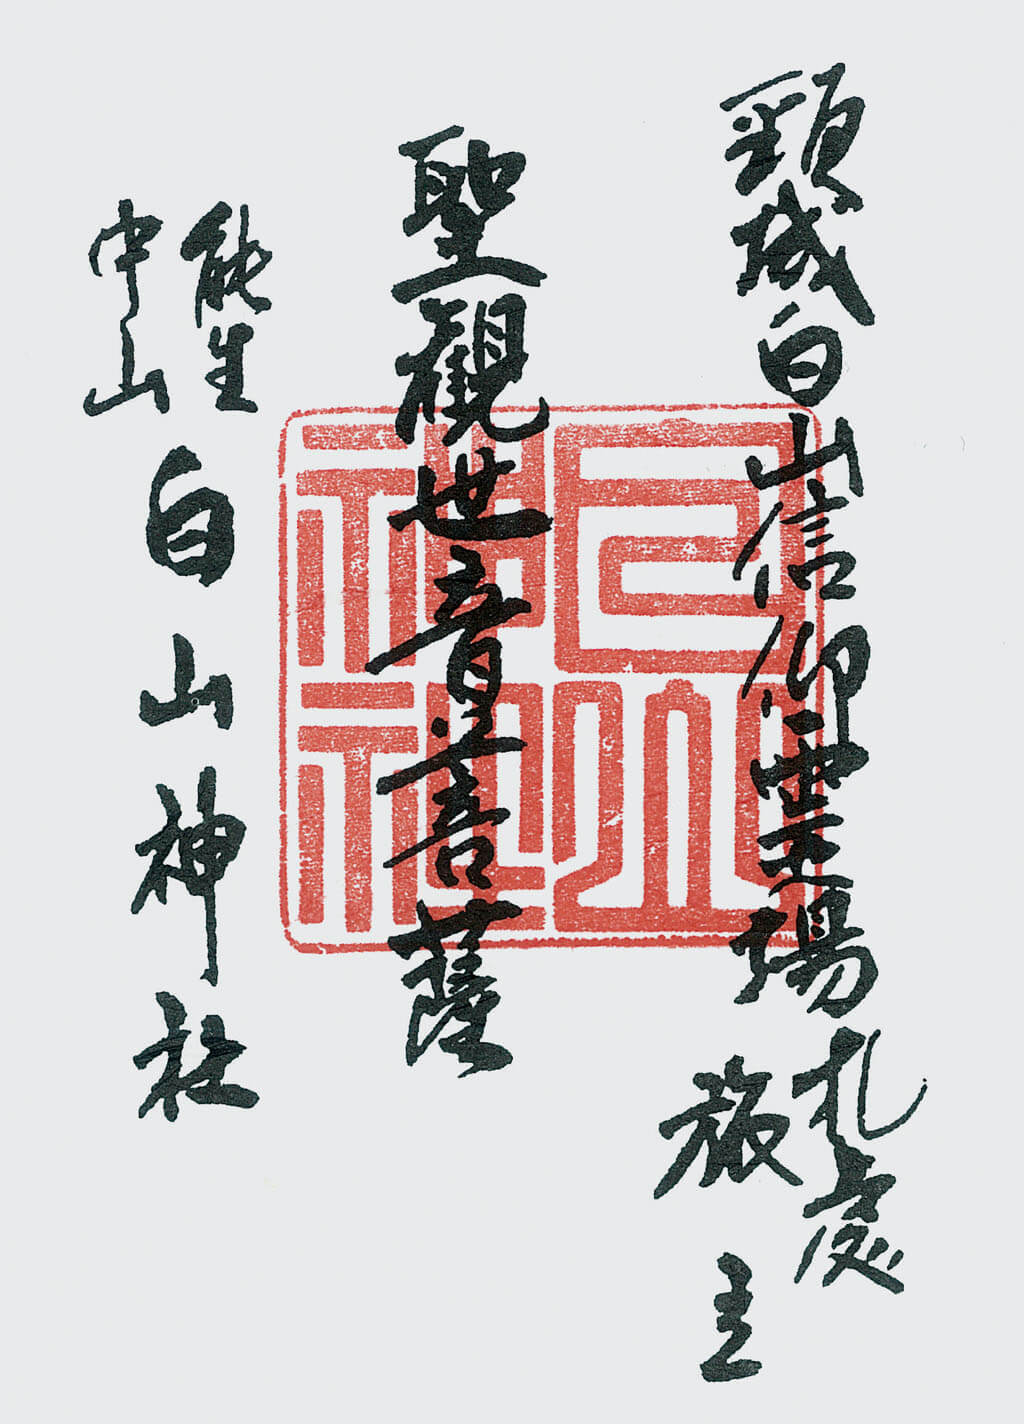 頸城白山信仰霊場
札處
主
聖観世音菩薩
能生
中山
白山神社
白山
神社